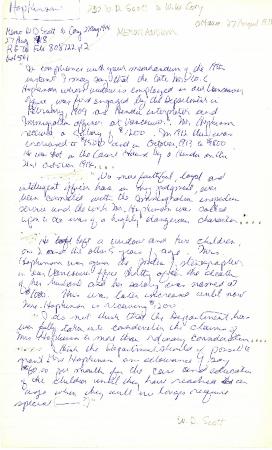 Hopkinson
Memo W D Scott to W W Cory
Ottawa 27 August 1918
27 Aug 1918
Memorandum
RG 76 File 808722 pt 2
vol 561
In compliance with your memorandum of the 19th
instant I may say that the late Mr W. C.
Hopkinson whose widow is employed in our Vancouver
office was first engaged by the Department in
February, 1909 as Hindu interpreter and
Immigration officer at Vancouver. Mr. Hopkinson
received a salary of $1200. In 1912 this was
increased to $1500 and in October, 1913 to $1800.
He was shot in the Court House by a Hindu on the
21st October 1914.
No more faithful, loyal and
intelligent officer has in my judgment, ever
been connected with the Immigration
service and the work Mr. Hopkinson was called
upon to do was of a highly dangerous character
He left a widow and two children
Mrs.
Hopkinson was given the position of stenographer
in our Vancouver office shortly after the death
of her husband and her salary was named at
This was later increased until now
Mrs. Hopkinson is receiving
I do not think that the Department has
fully taken into consideration the claims of
Mrs Hopkinson to most than ordinary consideration
I think the Department should if possible
grant Mrs Hopkinson an allowance of say
per month for the care and education
of the children until they have reached an
age when they will no longer require
special
W. D. Scott